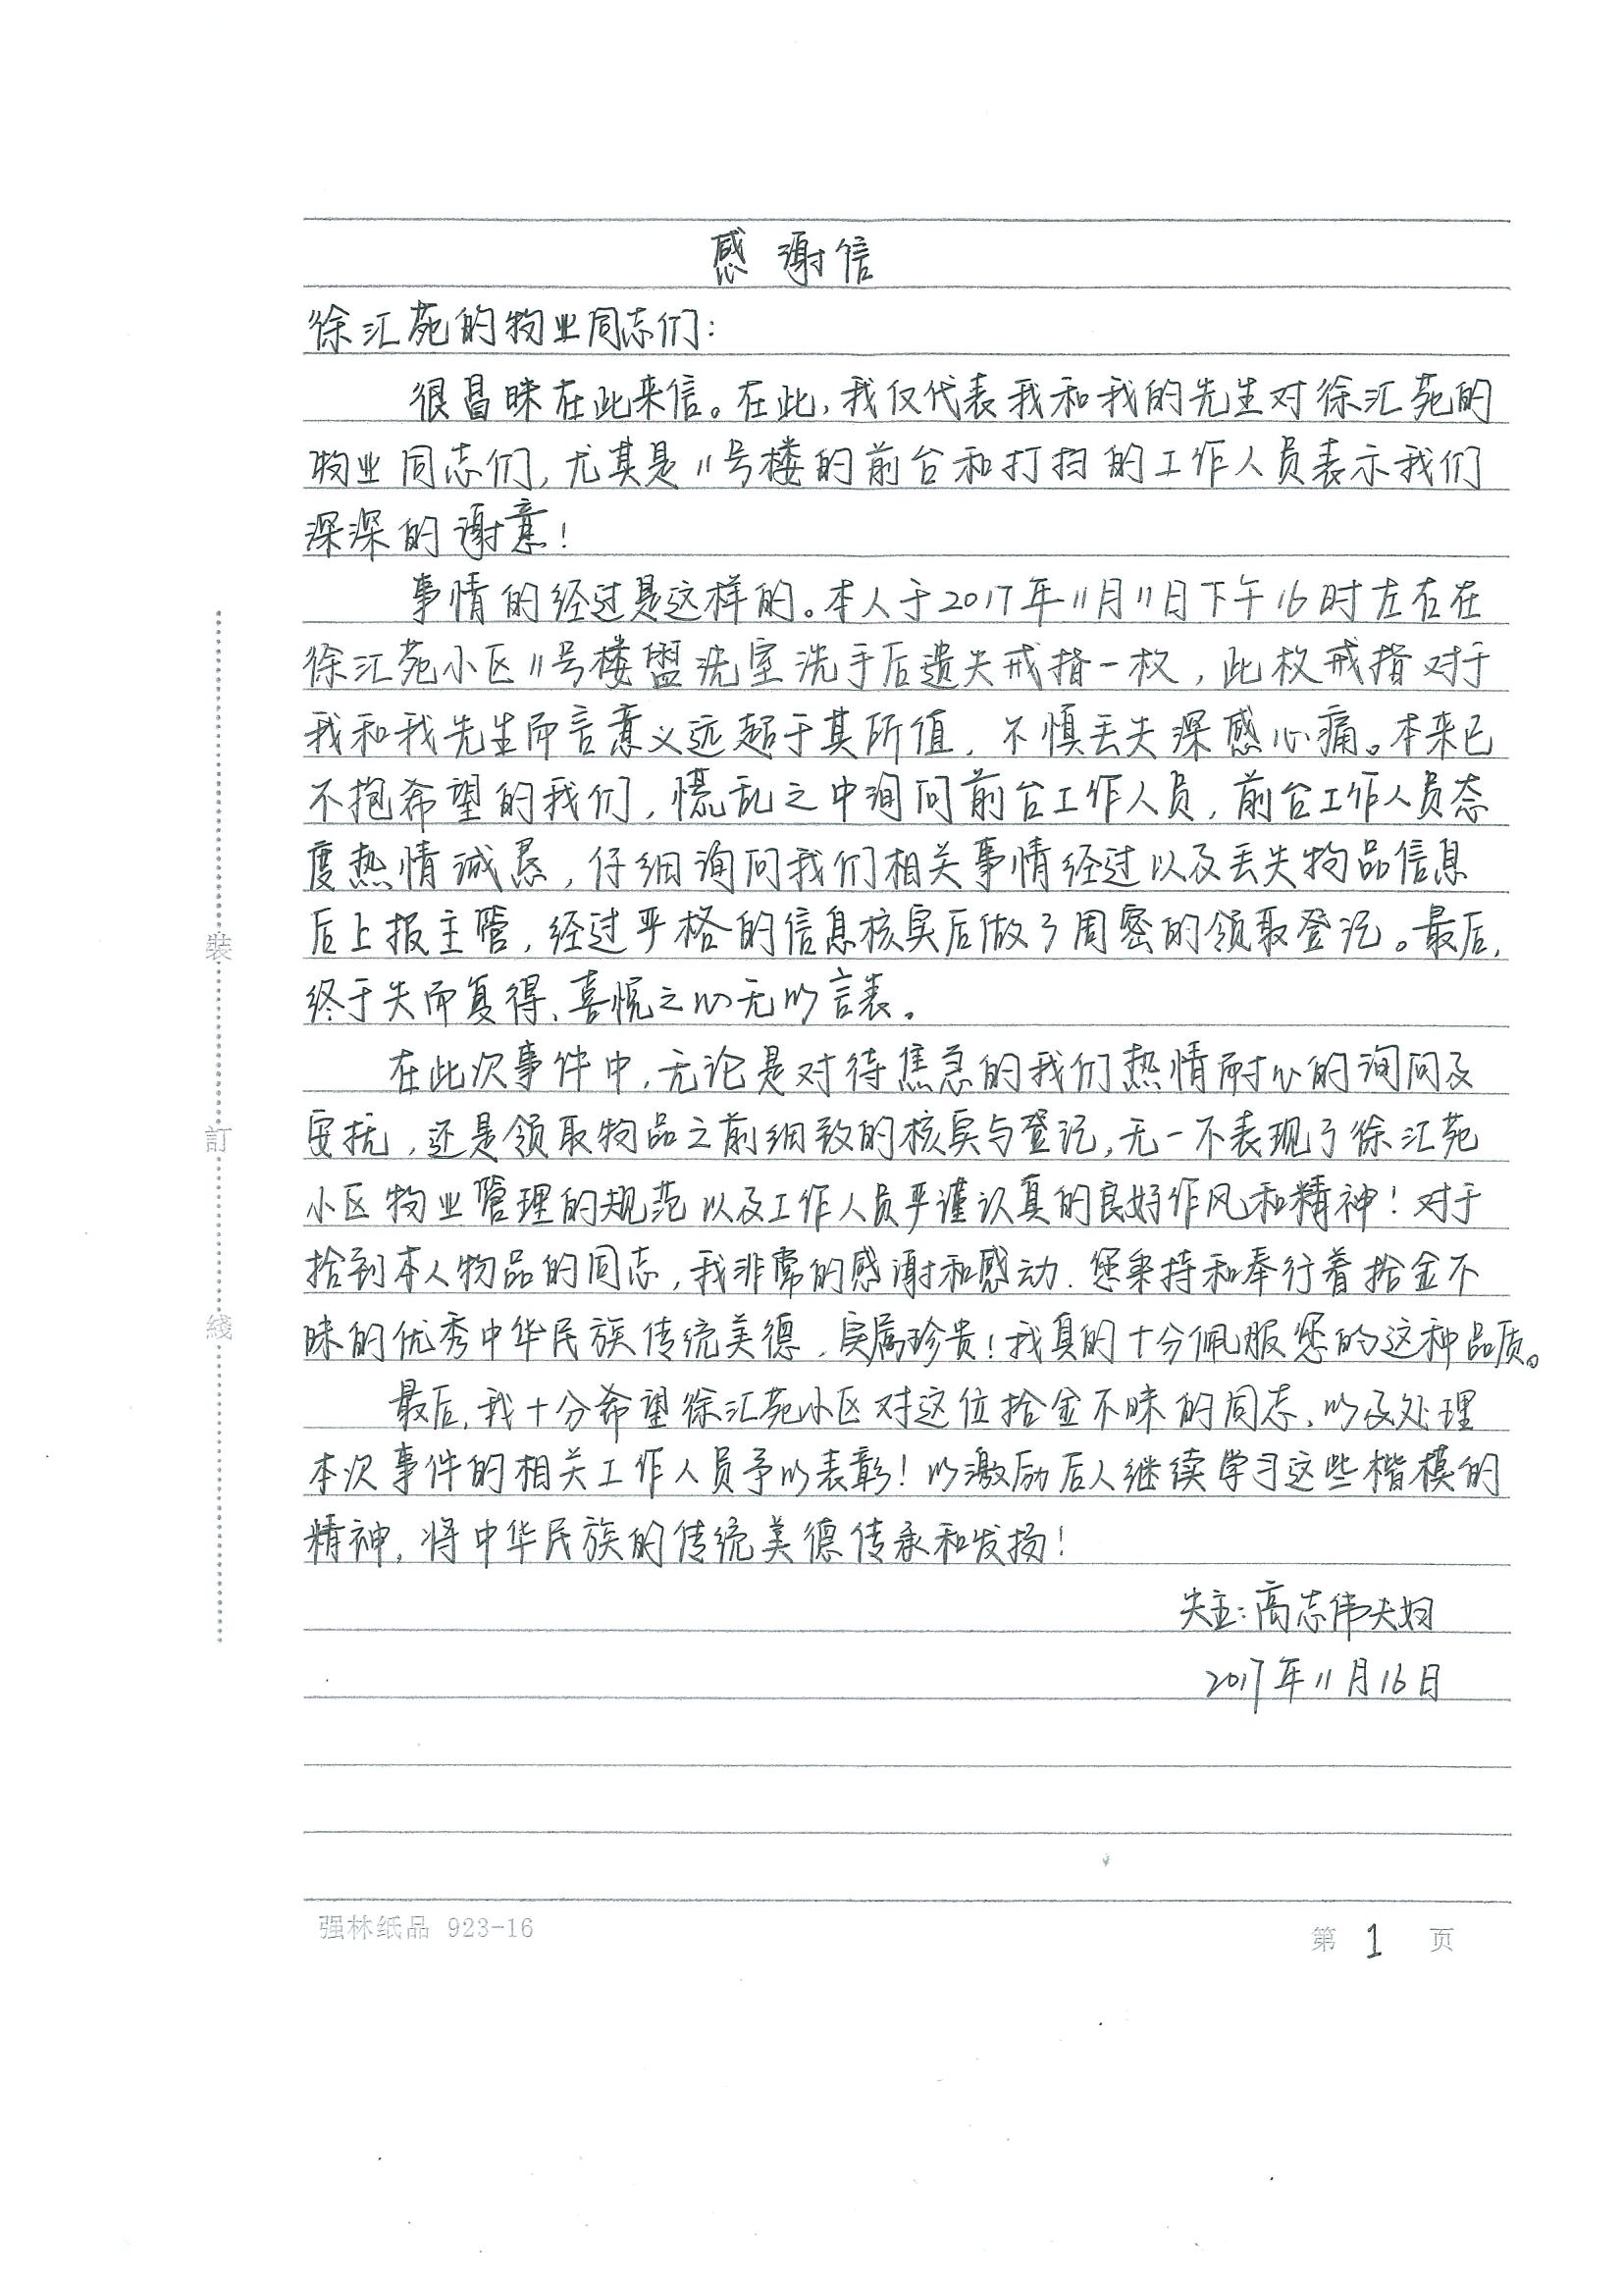 感谢信
徐汇苑的物业同志们：
很冒昧在此来信。在此，我仅代表我和我的先生对徐汇苑的
物业同志们，尤其是11号楼的前台和打扫的工作人员表示我们
深深的谢意！
事情的经过是这样的。本人于2017年11月11日下午16时左右在
徐汇苑小区11号楼盥洗室洗手后遗失戒指一枚，此枚戒指对于
我和我先生而言意义远超于其所值，不慎丢失深感心痛。本来已
不抱希望的我们，慌乱之中询问前台工作人员，前台工作人员态
度热情诚恳，仔细询问我们相关事情经过以及丢失物品信息
后上报主管，经过严格的信息核实后做了周密的领取登记。最后，
终于失而复得、喜悦之心无以言表。
在此次事件中，无论是对待焦急的我们热情耐心的询问及
安抚，还是领取物品之前细致的核实与登记，无一不表现了徐汇苑
小区物业管理的规范以及工作人员严谨认真的良好作风和精神！对于
拾到本人物品的同志，我非常的感谢和感动．您秉持和奉行着拾金不
昧的优秀中华民族传统美德，实属珍贵！我真的十分佩服您的这种品质。
最后，我十分希望徐汇苑小区对这位拾金不昧的同志、以及处理
本次事件的相关工作人员予以表彰！以激励后人继续学习这些楷模的
精神，将中华民族的传统美德传承和发扬！
失主：高志伟夫妇
2017年11月16日
裝
訂
綫
强林纸品 923-16
第 1 页